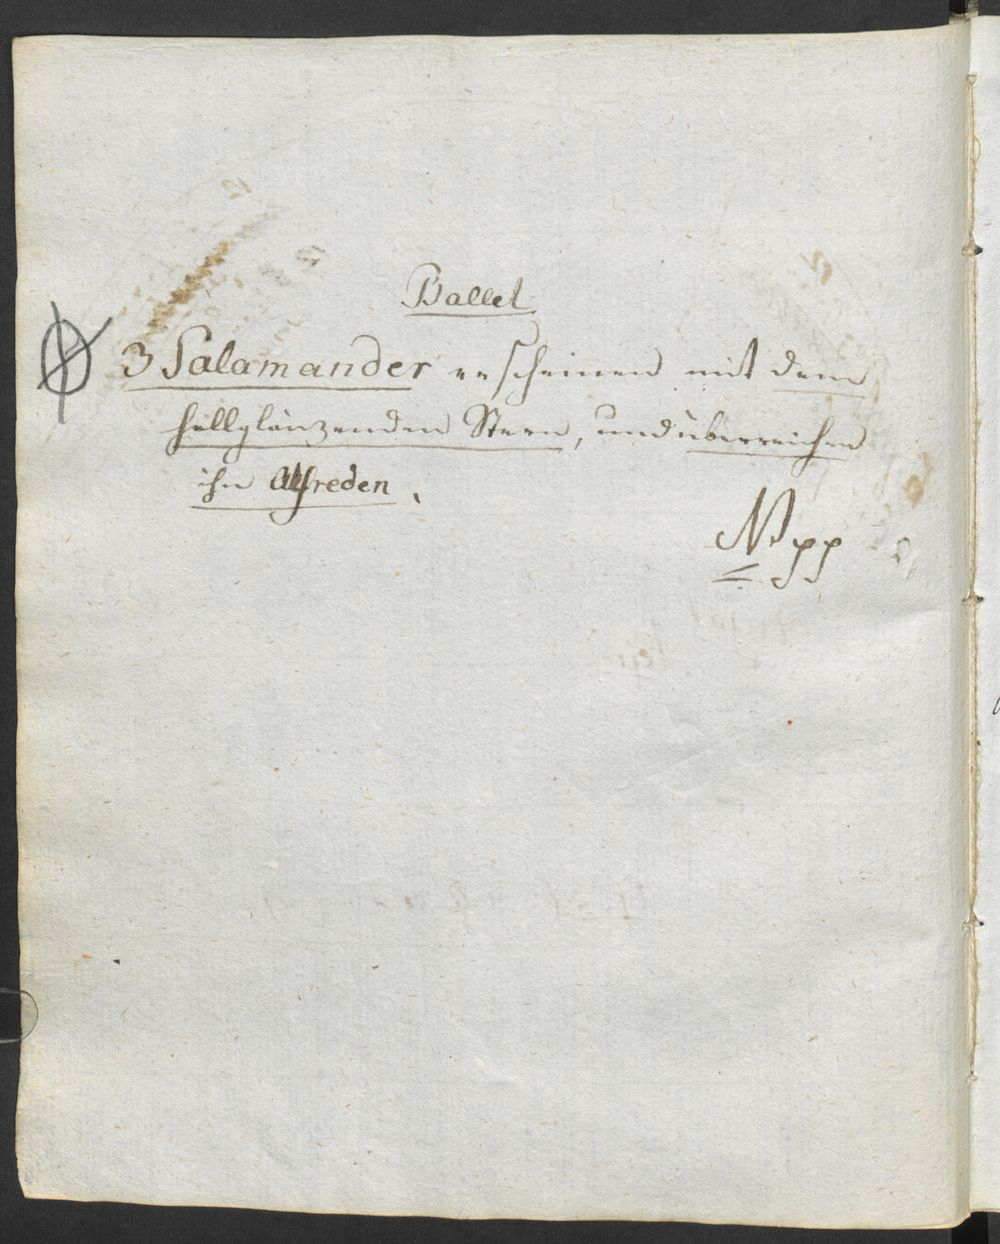 Ballet
3 Salamander erscheinen mit dem
hellglänzenden Stern, und überreichen
ihn Alfreden.